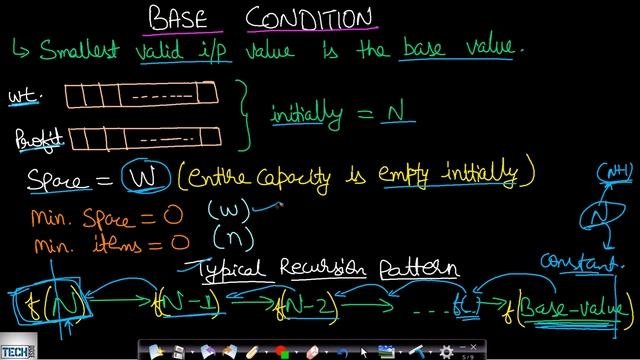 BASE CONDITION
↳ Smallest valid i/p value is the base value.
wt.
initially = N
Profit
Space = W (entire capacity is empty initially)
(N+1)
Min. Space = 0 (W)
N
min. items = 0 (n)
Typical Recursion Pattern
constant
f(N) → f(N-1) → f(N-2) → ... f(..) → f(Base-value)
TECH
5/9